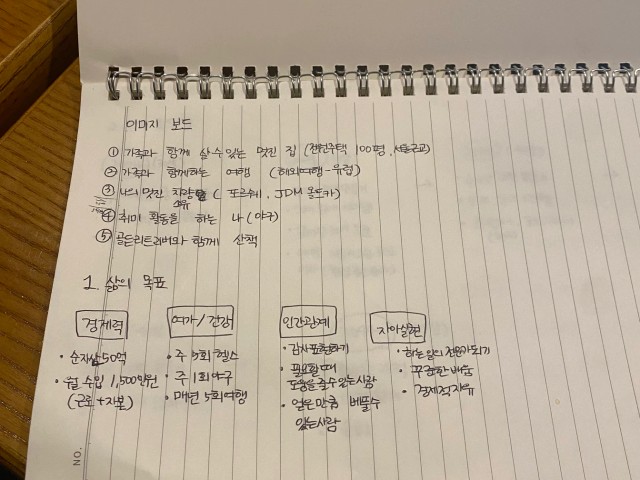 이미지 보드
① 가족과 함께 살 수 있는 멋진 집 (전원주택 100평, 서울근교)
② 가족과 함께하는 여행 (해외여행-유럽)
③ 나의 멋진 차량 (포르쉐, JDM 올드카)
소유
④ 취미 활동을 하는 나 (야구)
⑤ 골든리트리버와 함께 산책
1. 삶의 목표
경제력 여가/건강 인간관계 자아실현
· 순자산 50억
· 월 수입 1,500만원
(근로+자본)
· 주 5회 헬스
· 주 1회 야구
· 매년 5회 여행
· 감사 표현하기
· 필요할 때
도움을 줄 수 있는 사람
· 얻은 만큼 베풀 수
있는 사람
· 하는 일의 전문가 되기
· 꾸준한 배움
· 경제적 자유
NO.